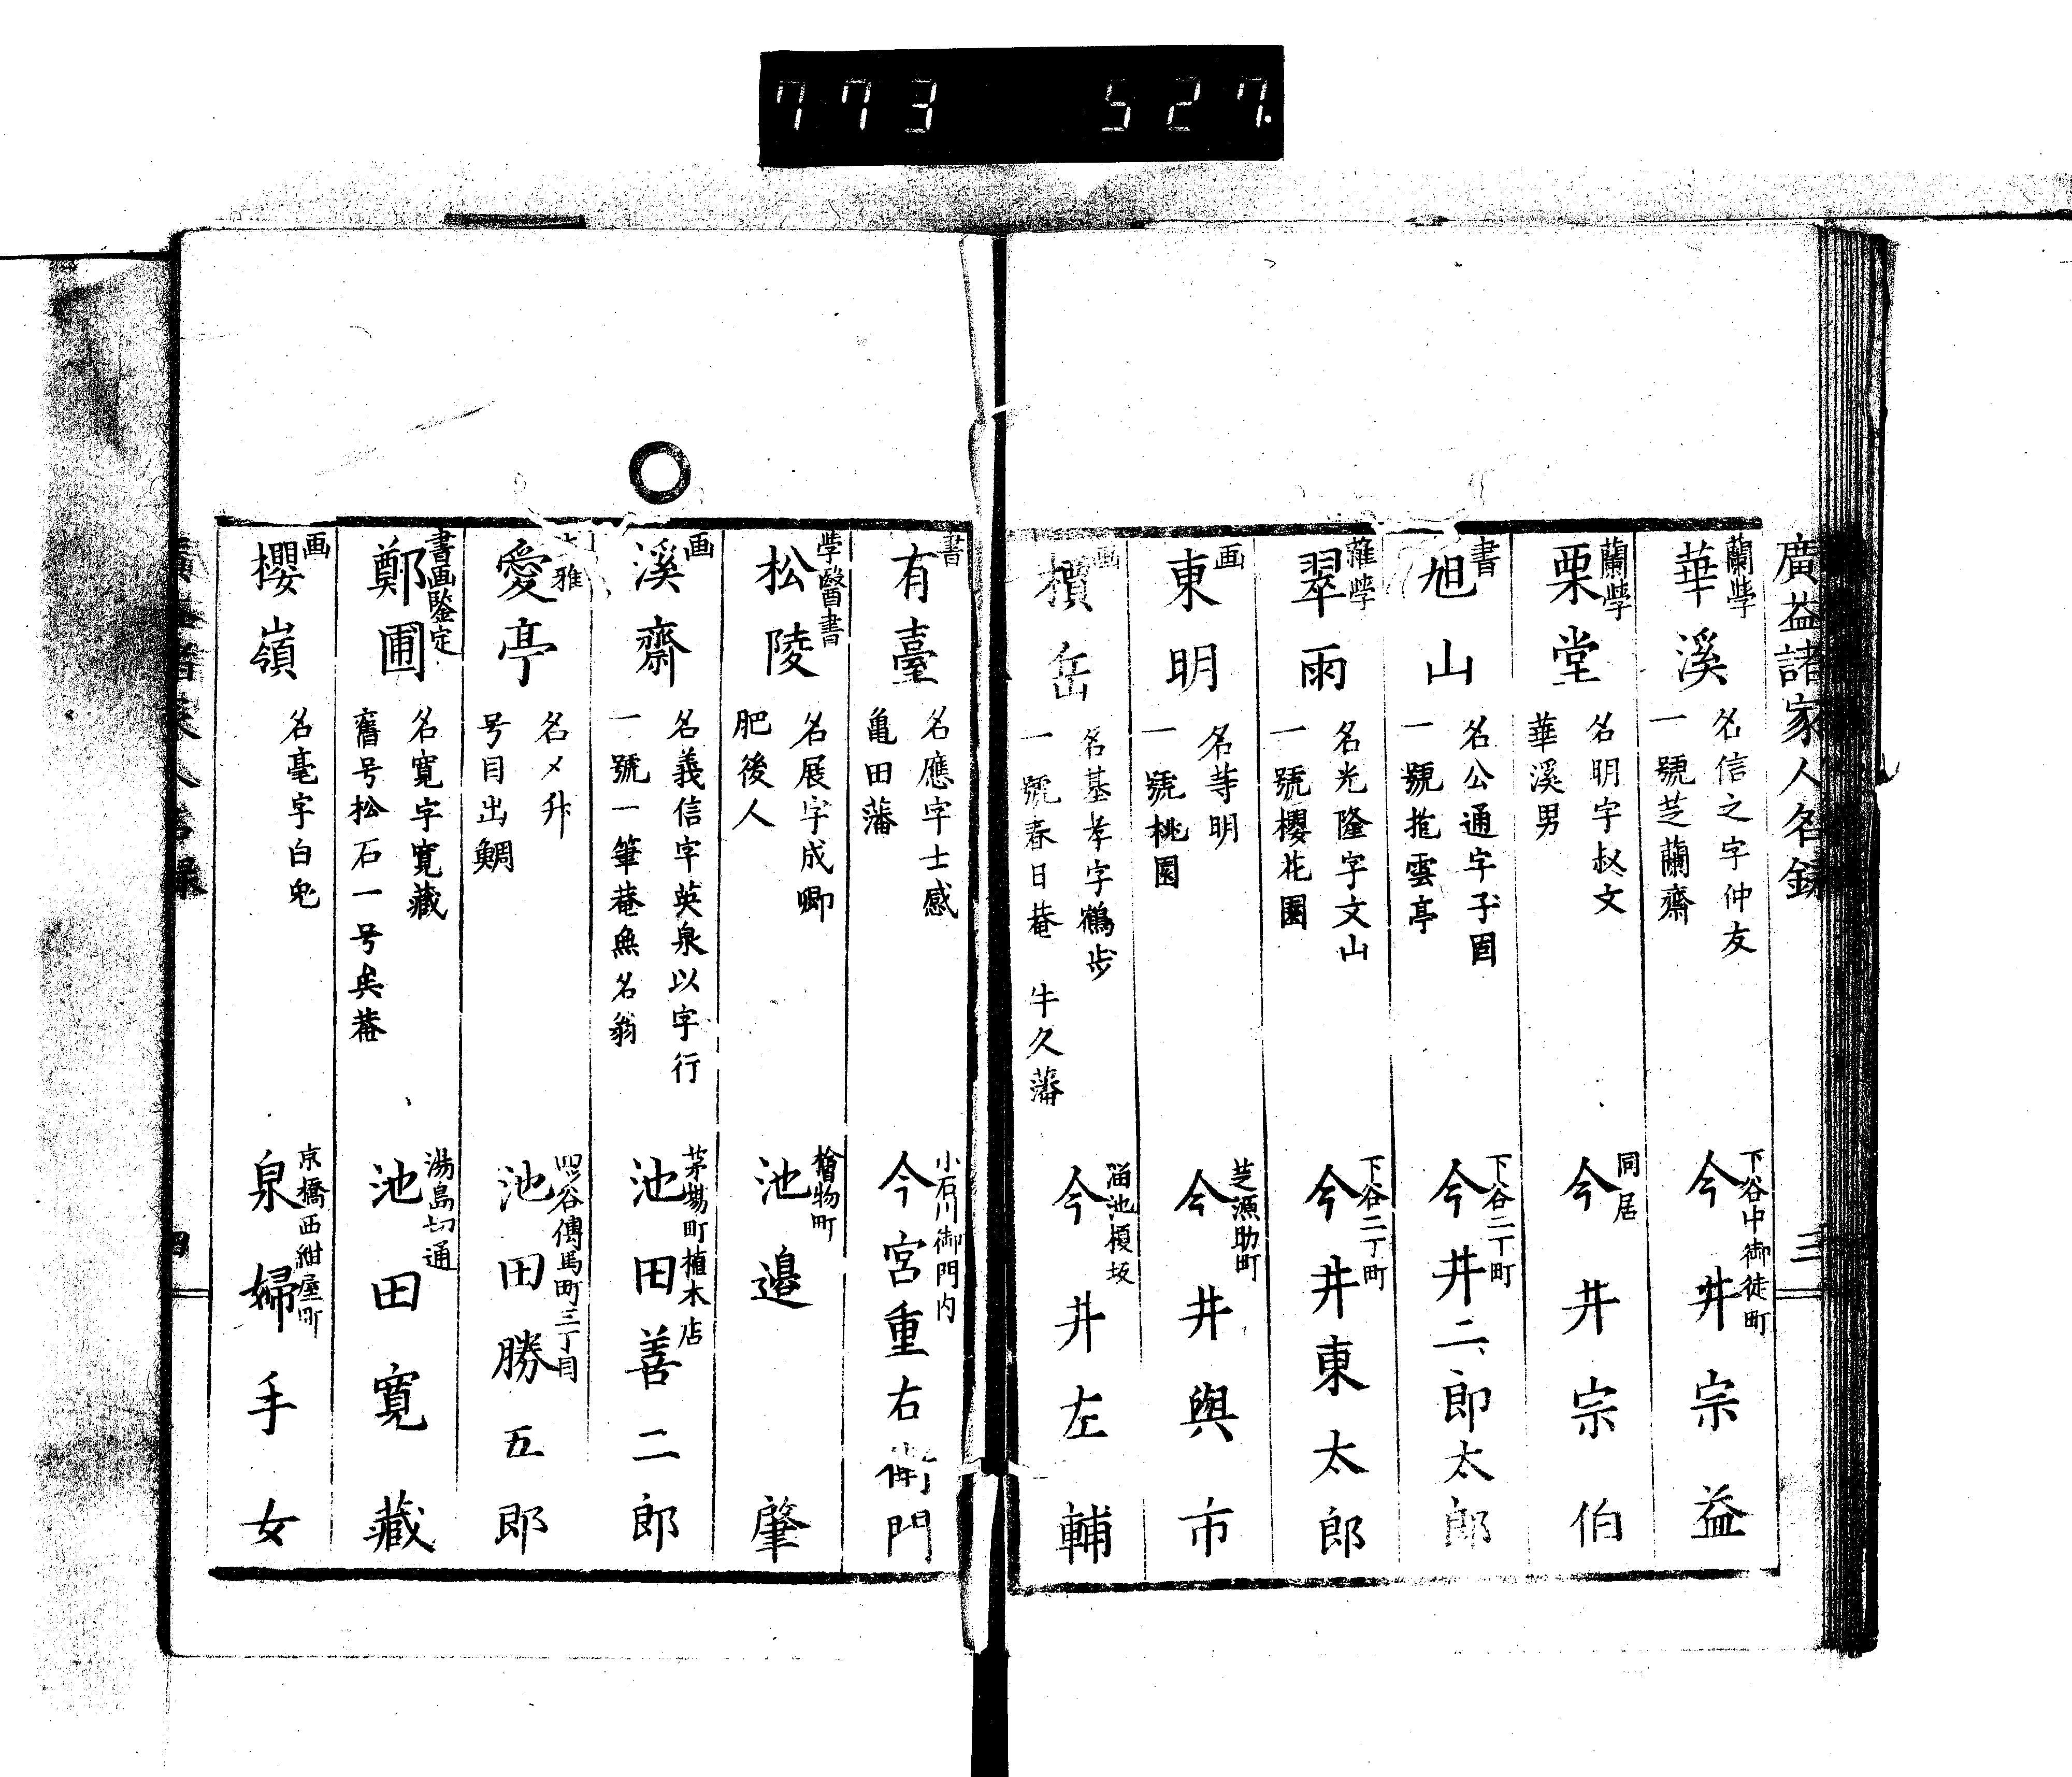 773 527.
廣益諸家人名録
三
蘭學
華溪
名信之字仲友
一號芝蘭齋
下谷中御徒町
今井宗益
蘭學
栗堂
名明字叔文
華溪男
同居
今井宗伯
書
旭山
名公通字子固
一號摧雲亭
下谷二丁町
今井二郎太郎
雜學
翠雨
名光隆字文山
一號櫻花園
下谷二丁町
今井東太郎
画
東明
名等明
一號桃園
芝源助町
今井與市
画
槓岳
名基孝字鶴歩
一號春日菴 牛久藩
溜池榎坂
今井左輔
書
有臺
名應字士感
亀田藩
小石川御門内
今宮重右衛門
學醫書
松陵
名展字成卿
肥後人
檜物町
池邉肇
画
溪齋
名義信字英泉以字行
一號一筆菴無名翁
茅場町植木店
池田善二郎
雅
愛亭
名〆升
号目出鯛
四谷傳馬町三丁目
池田勝五郎
書画鑒定
鄭圃
名寛字寛藏
舊号松石一号矣菴
湯島切通
池田寛藏
画
櫻嶺
名毫字白皃
京橋西紺屋町
泉婦手女
四